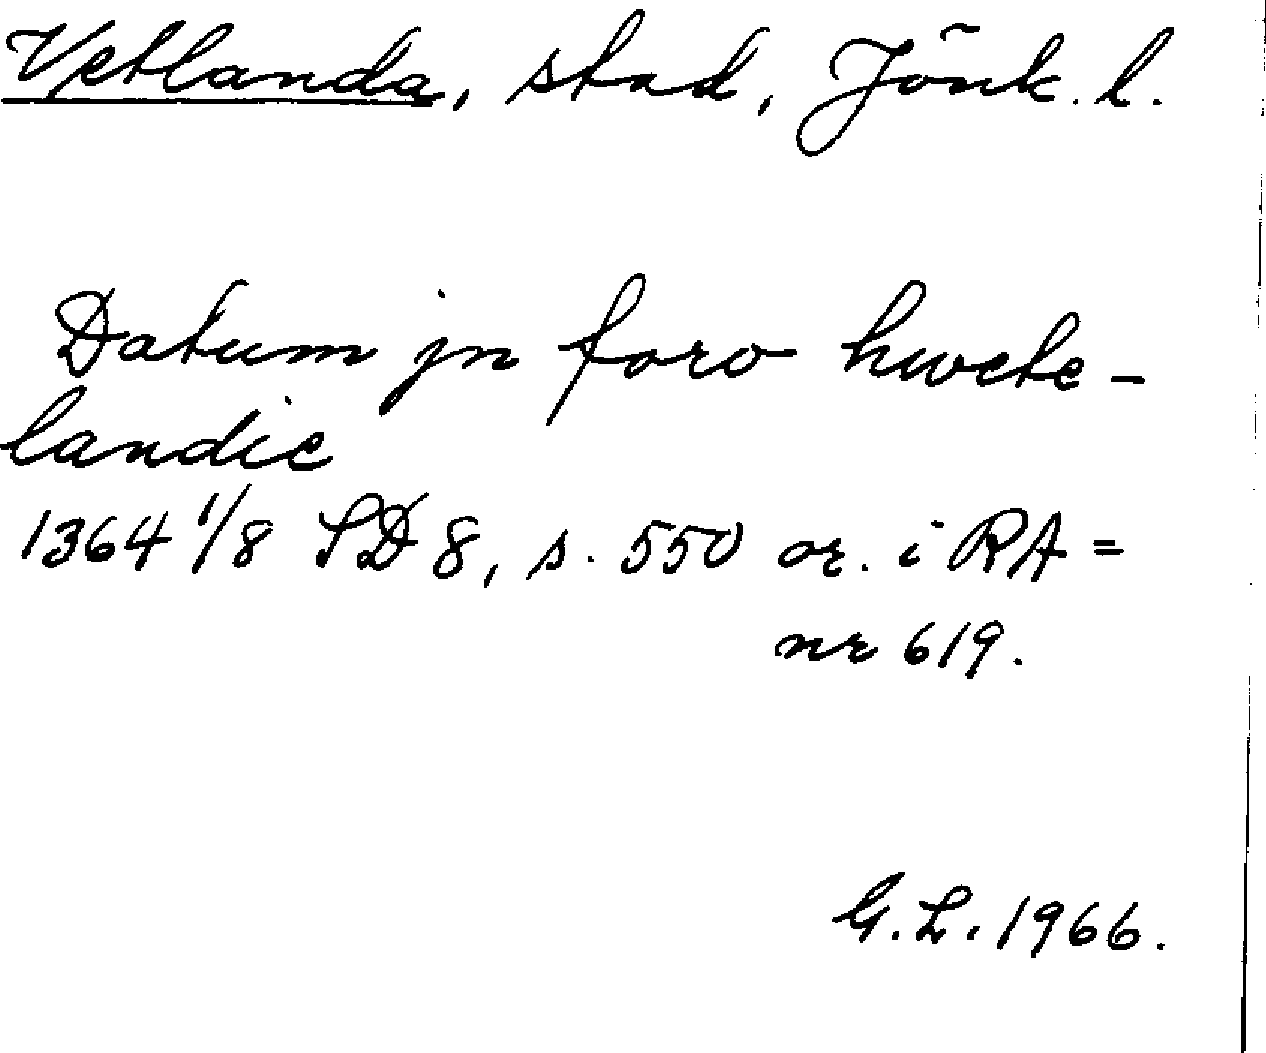 Vetlanda, stad, Jönk. l.
Datum jn foro hwete-
landie
1364 1/8 SD 8, s. 550 or. i RA =
nr 619.
G.L. 1966.